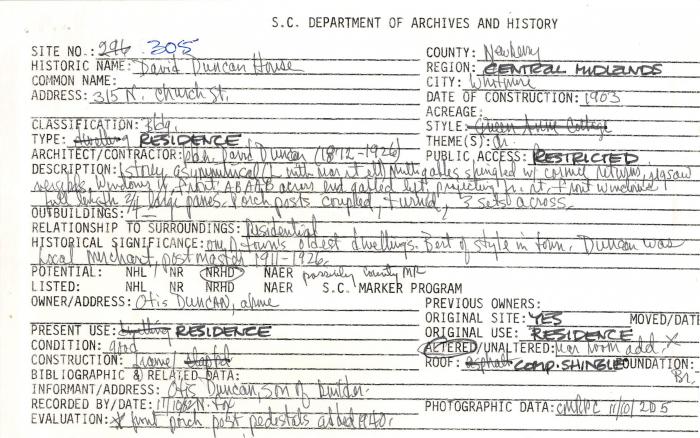 S.C. DEPARTMENT OF ARCHIVES AND HISTORY
SITE NO.: 296 305
COUNTY: Newberry
HISTORIC NAME: David Duncan House
REGION: CENTRAL MIDLANDS
COMMON NAME:
CITY: Whitmire
ADDRESS: 315 N. Church St.
DATE OF CONSTRUCTION: 1903
ACREAGE:
CLASSIFICATION: Bldg.
STYLE: Queen Anne Cottage
TYPE: dwelling RESIDENCE
THEME(S):
ARCHITECT/CONTRACTOR: David Duncan (1872-1926)
PUBLIC ACCESS: RESTRICTED
DESCRIPTION: 1 story asymmetrical, Multi gables shingled w/ cornice returns, jigsaw
across end gabled left, projecting
full length large panes. Porch posts coupled, turned, 3 sets across.
OUTBUILDINGS:
RELATIONSHIP TO SURROUNDINGS: Residential
HISTORICAL SIGNIFICANCE: one of town's oldest dwellings. Best of style in town. Duncan was
local merchant, postmaster 1911-1926.
POTENTIAL: NHL NR NRHD NAER possibly county MR
LISTED: NHL NR NRHD NAER S.C. MARKER PROGRAM
OWNER/ADDRESS: Otis Duncan, above
PREVIOUS OWNERS:
ORIGINAL SITE: YES MOVED/DATE
PRESENT USE: dwelling RESIDENCE
ORIGINAL USE: RESIDENCE
CONDITION: good
ALTERED/UNALTERED: rear room add. X
CONSTRUCTION: frame/
ROOF: asphalt COMP. SHINGLE FOUNDATION: Br.
BIBLIOGRAPHIC & RELATED DATA:
INFORMANT/ADDRESS: Otis Duncan, son of builder.
RECORDED BY/DATE: N. Fox
PHOTOGRAPHIC DATA: CMRPC 11/10/2D5
EVALUATION: X front porch post pedestals added 1940.